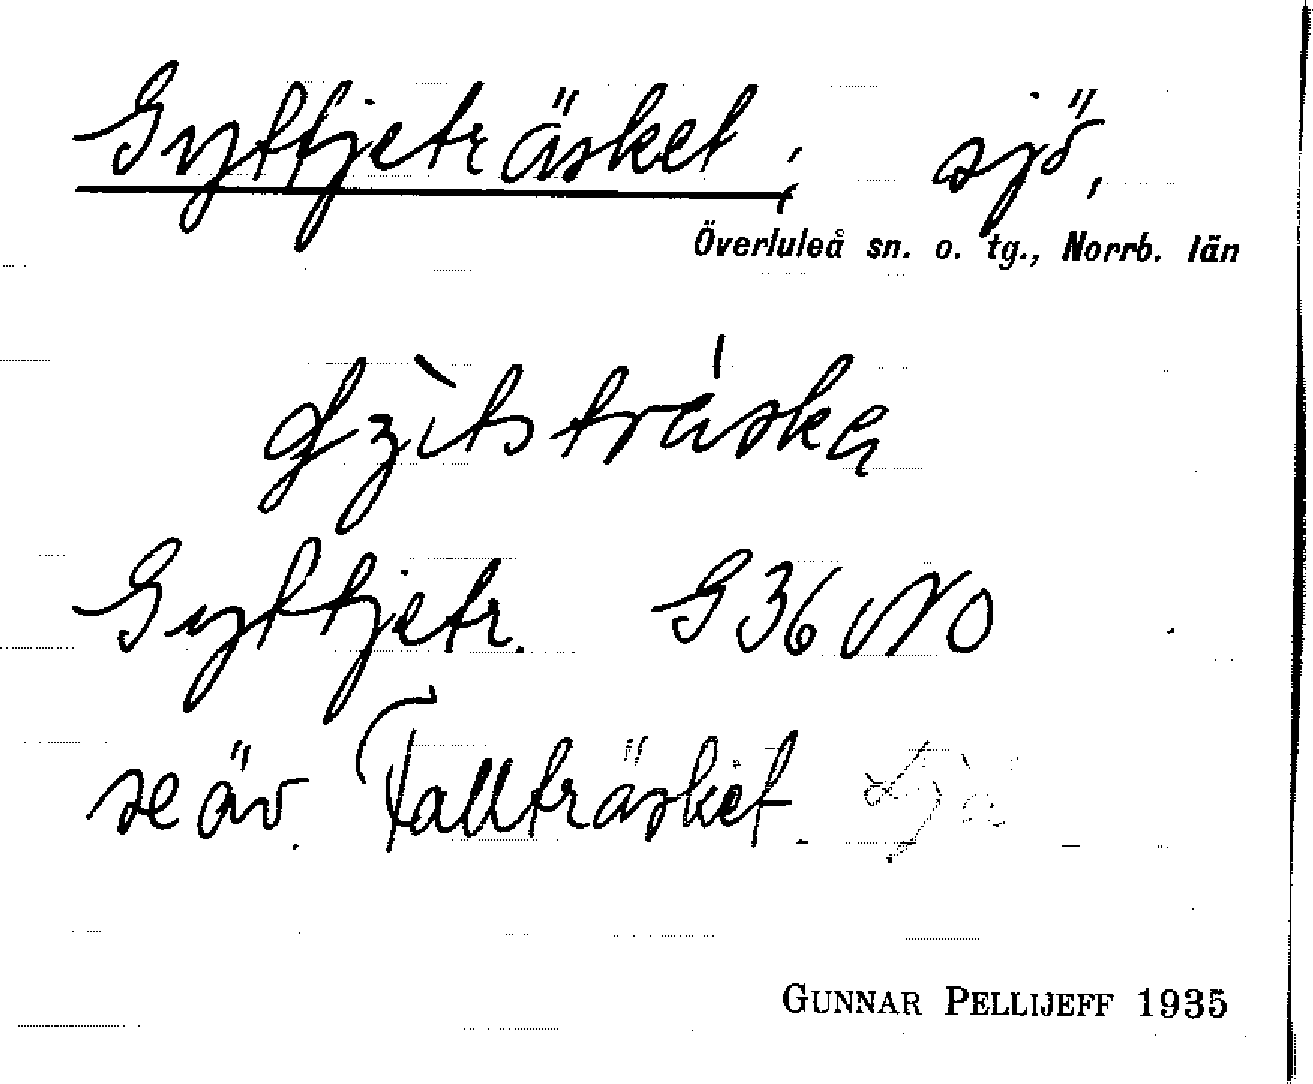 Gyttjeträsket, sjö,
Överluleå sn. o. tg., Norrb. län
Gyttjetr. G 36 NO
se äv. Fallträsket.
GUNNAR PELLIJEFF 1935